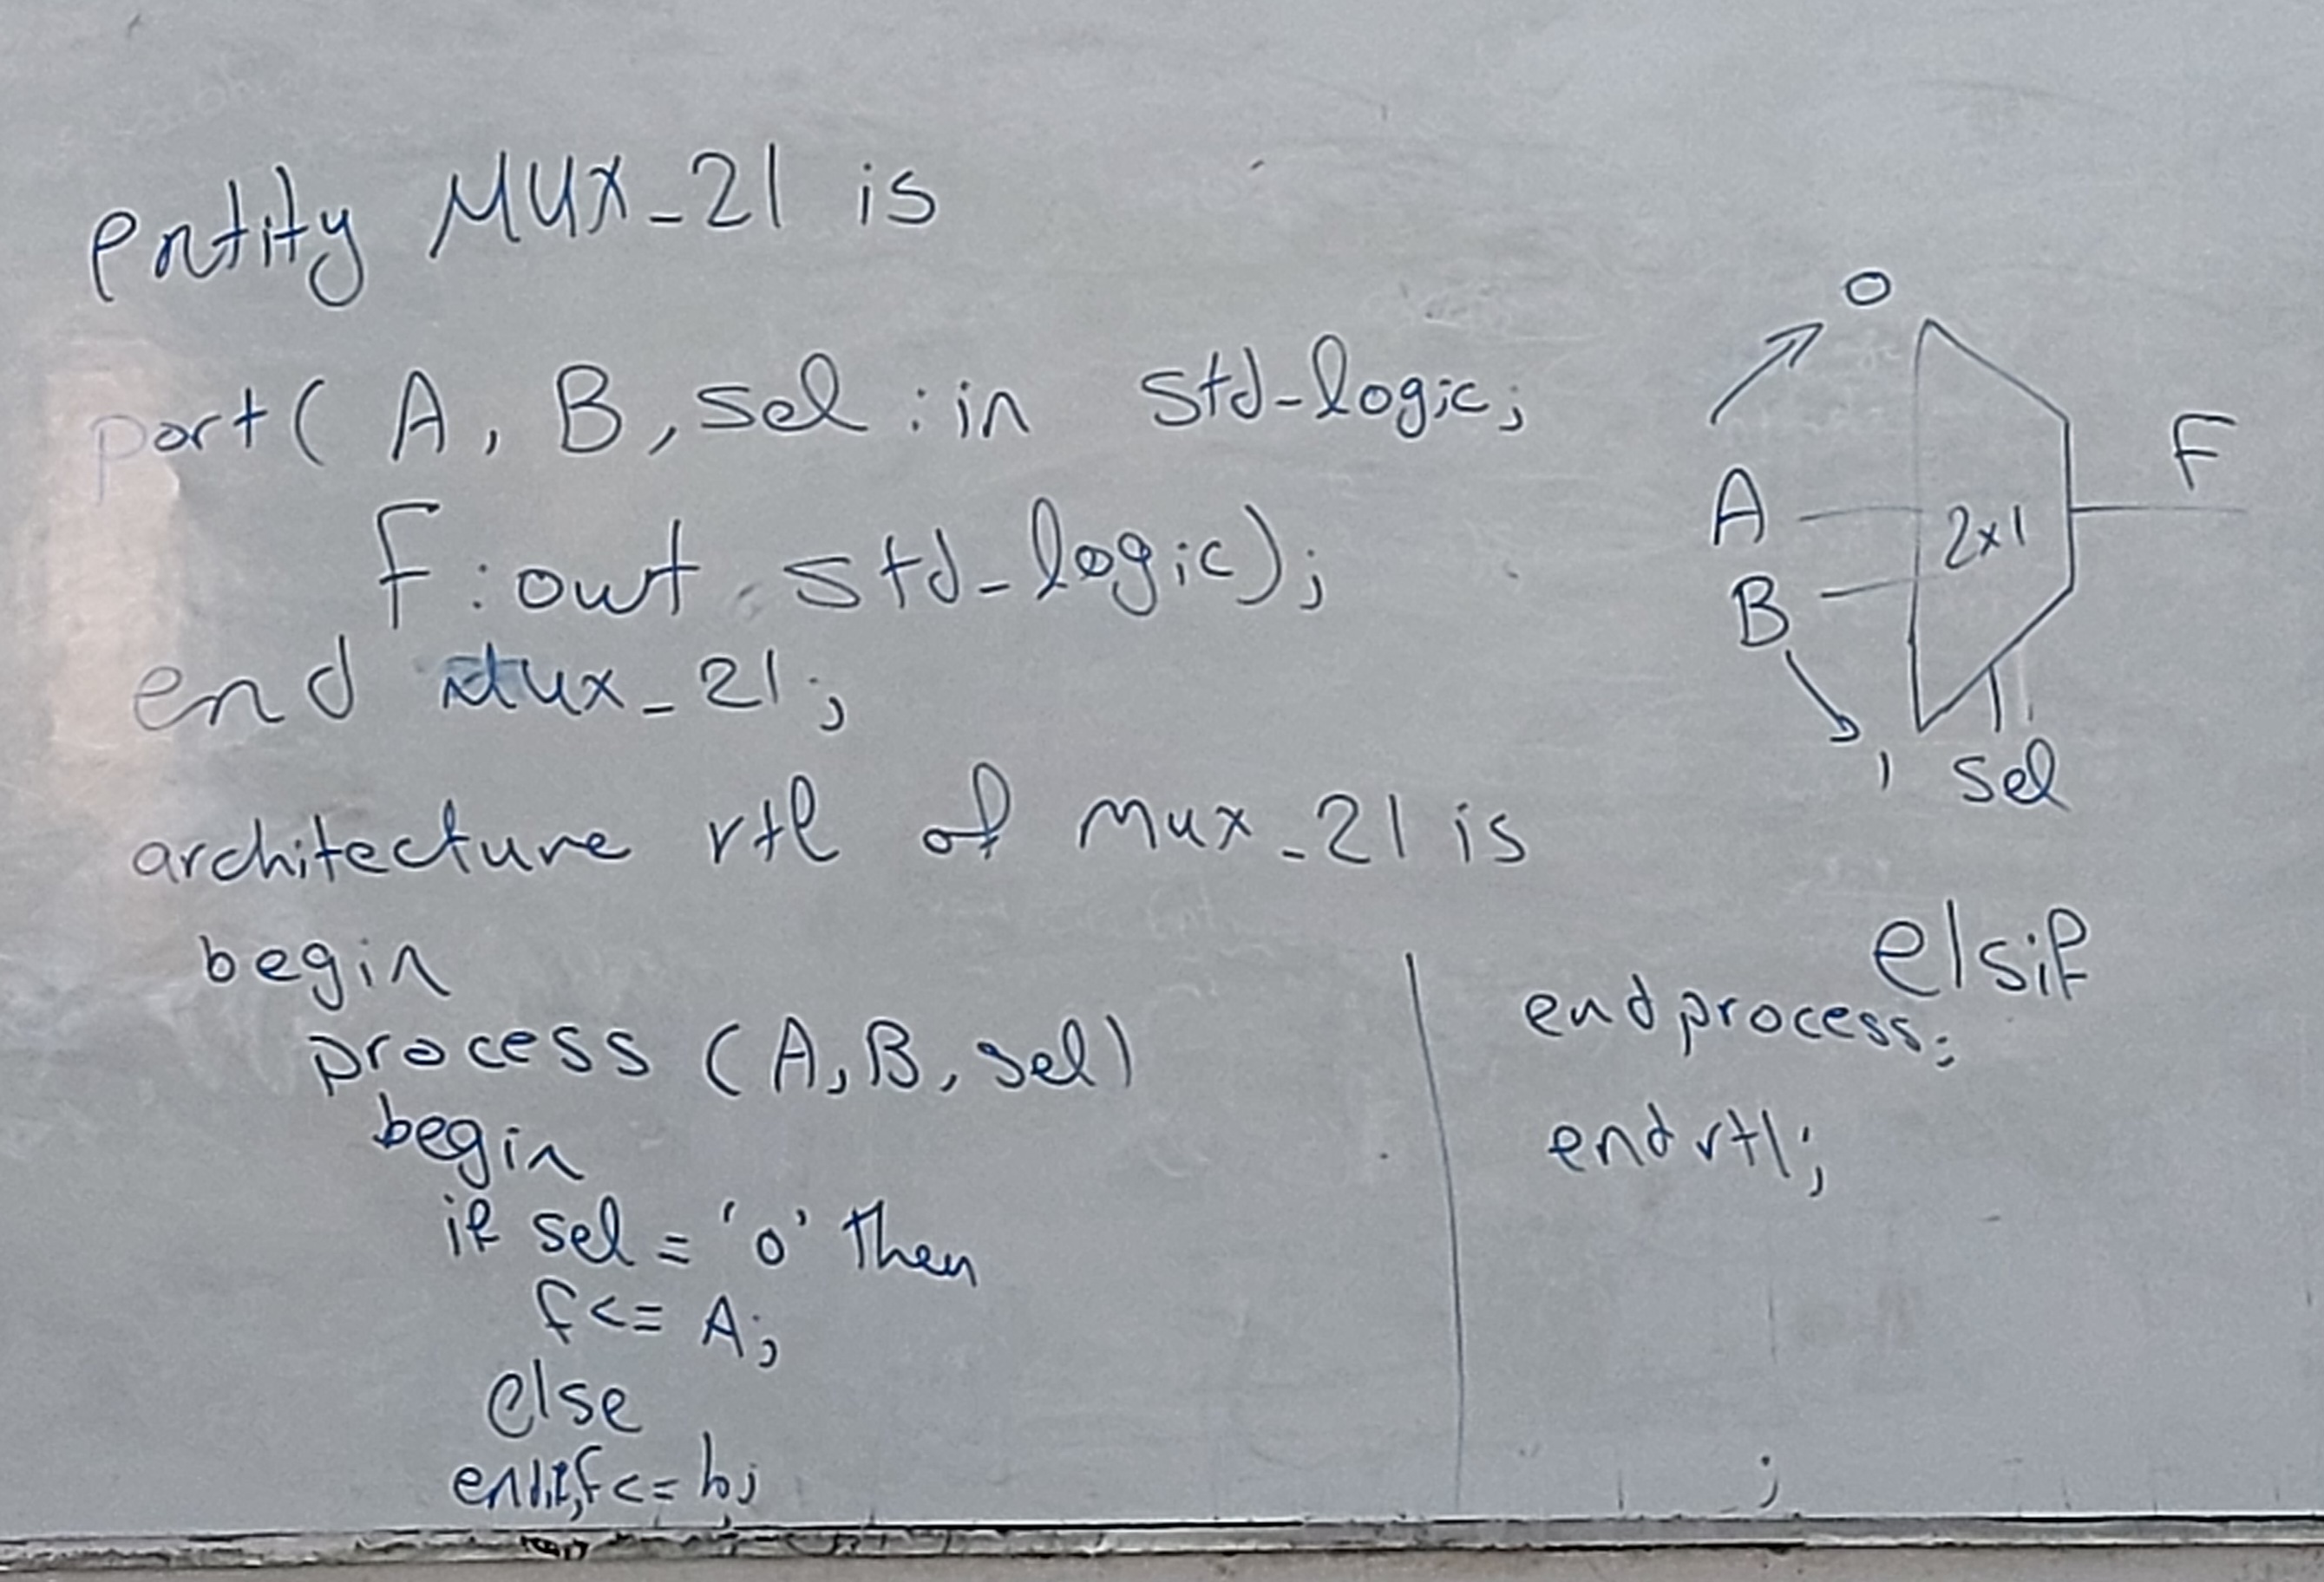 entity MUX_21 is
port( A, B, sel : in std-logic;
F : out std_logic);
end Mux_21;
architecture rtl of Mux_21 is
begin
process (A, B, sel)
begin
if sel = '0' then
f <= A;
else
end if; f <= b;
elsif
end process;
end rtl;
;
0
A
B
2x1
F
1
sel